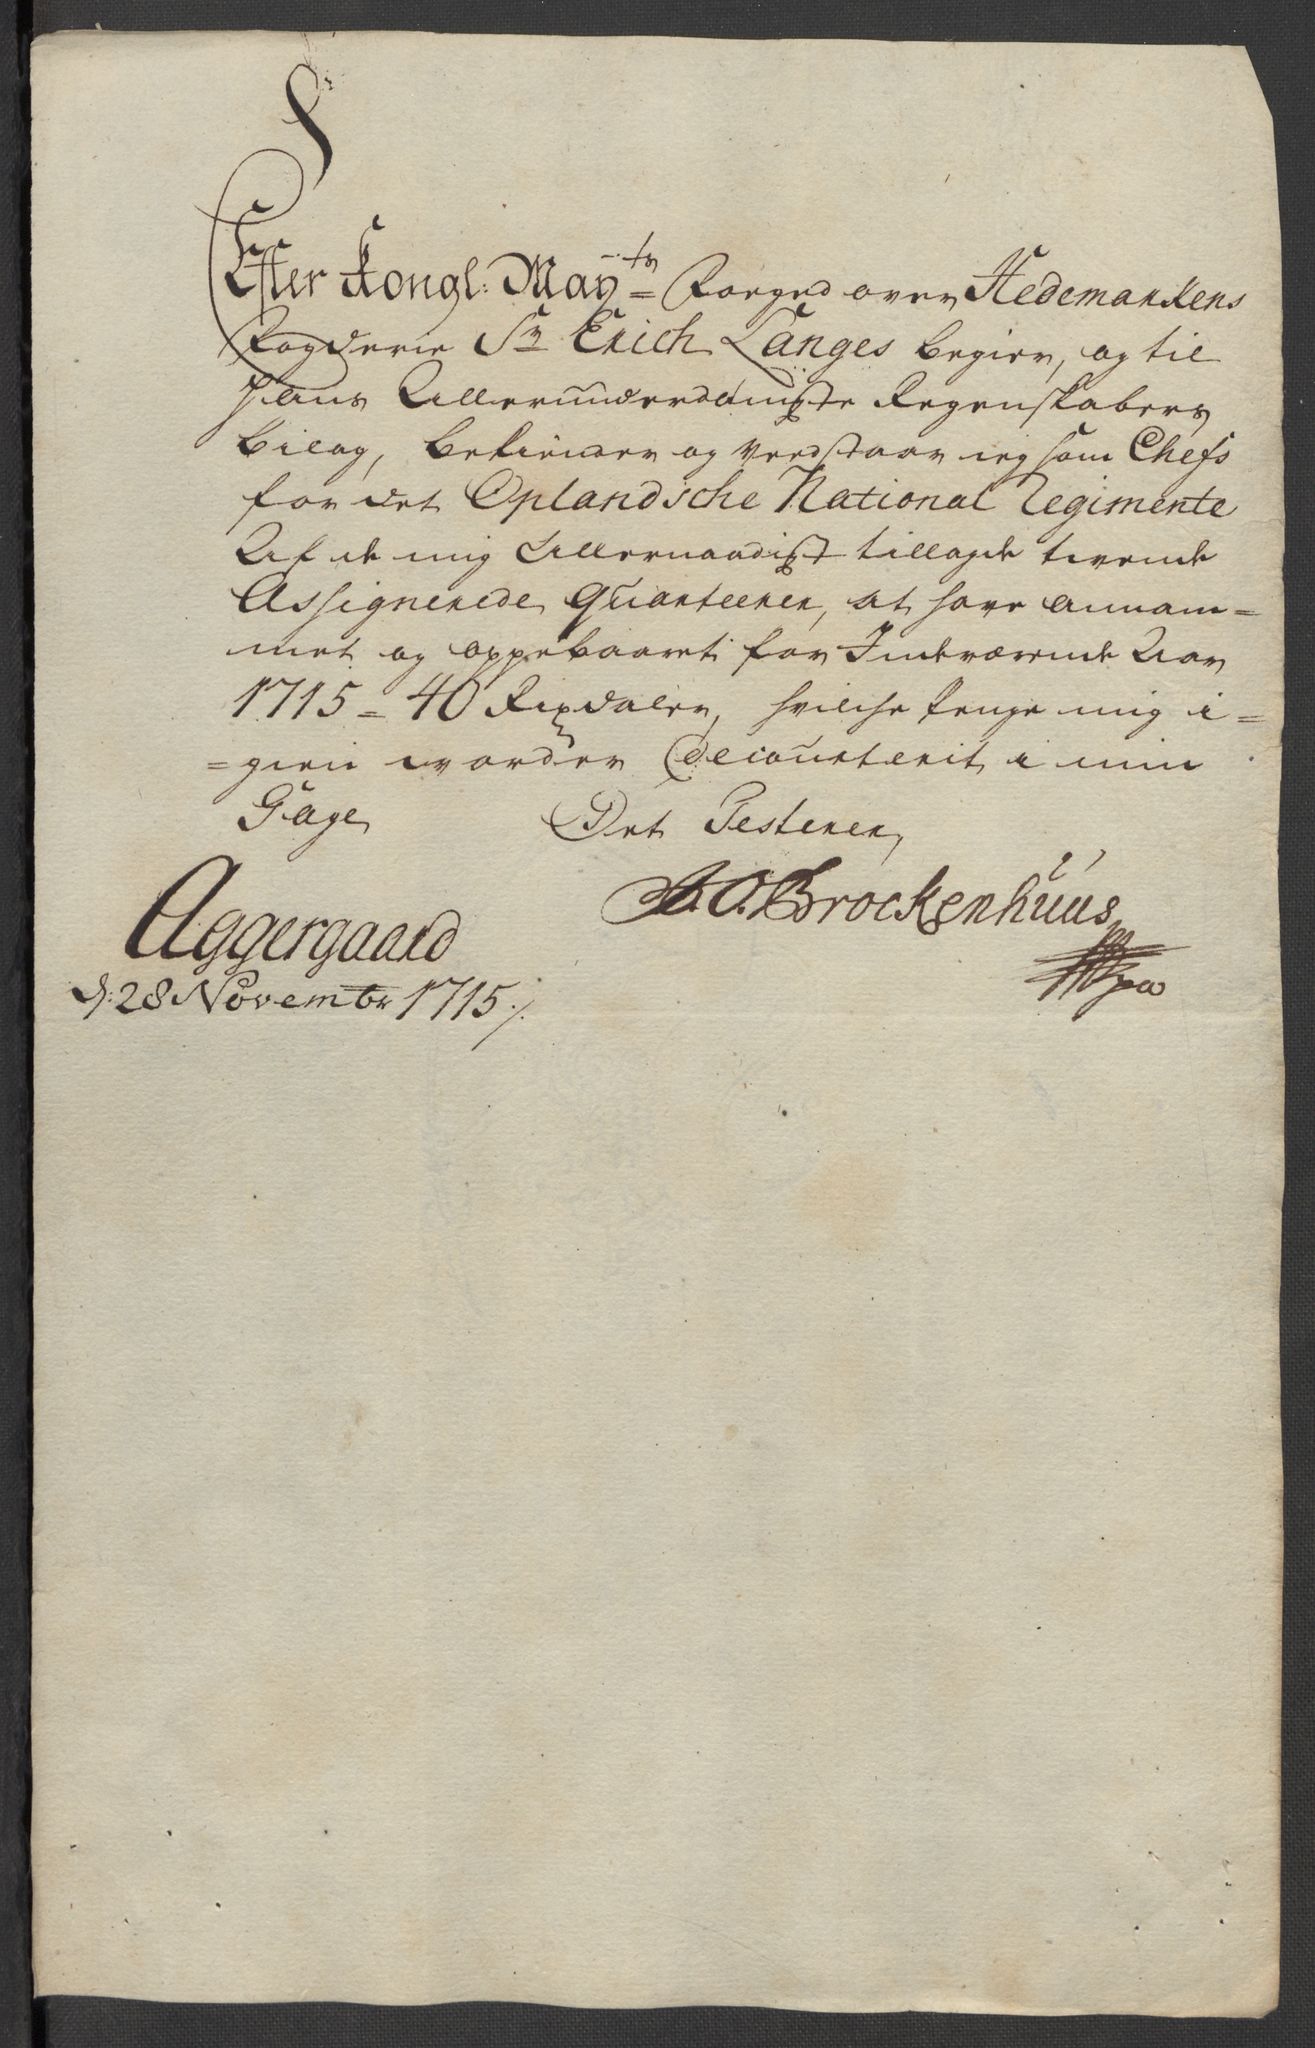 Efter Kongl: May:ts Foeged over Hedemarkens
Fogderie Sr Erich Langes begier, og til
hans Allerunderdanigste Regenskabers
bilag, bekiender og vedstaar ieg som Chefs
for det Oplandsche National Regimente
Af de mig Allernaadigst tillagde tvende
Assignerede Quarteerer, at have annam=
met og oppebaaret for Indeværende Aar
1715 = 40 Rixdaler, hvilche Penge mig i=
=gien worder decourterit i min
Gage Det Testerer,
Aggergaard
d: 28 Novembr 1715 ./.
Brockenhuus